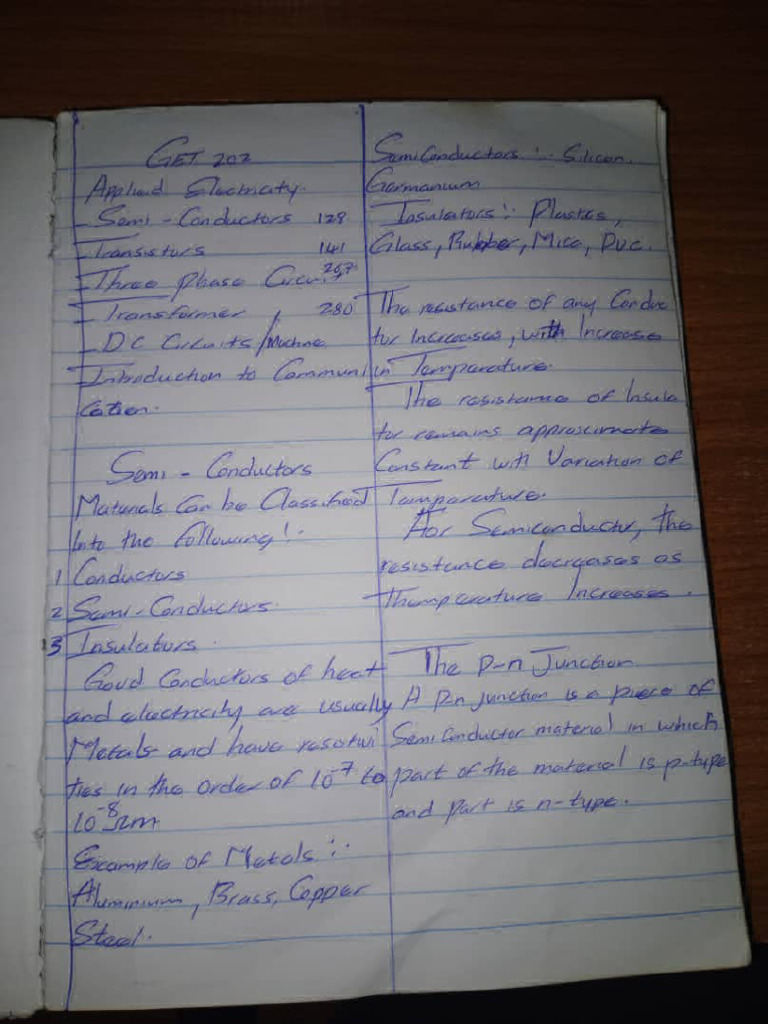 GET 202
Applied Electricity.
- Semi-Conductors 128
- Transistors 141
- Three phase Circuits 267
- Transformer, 280
- DC Circuits/Machine
- Introduction to Communi
cation.
Semi-Conductors
Materials Can be Classified
Into the following:-
1 Conductors
2 Semi-Conductors.
3 Insulators.
Good Conductors of heat
and electricity are usually
Metals and have resistivi
ties in the order of 10⁻⁷ to
10⁻⁸Ωm
Example of Metals:-
Aluminium, Brass, Copper
Steel.
Semi Conductors:- Silicon.
Germanium
Insulators:- Plastes,
Glass, Rubber, Mica, PVC.
The resistance of any Conduc
tor Increases, with Increase
in Temperature.
The resistance of Insula
tor remains approximate
Constant with Variation of
Temperature.
For Semiconductor, the
resistance decreases as
Themperature Increases.
The p-n Junction
A p-n junction is a piece of
Semi Conductor material in which
part of the material is p-type
and part is n-type.